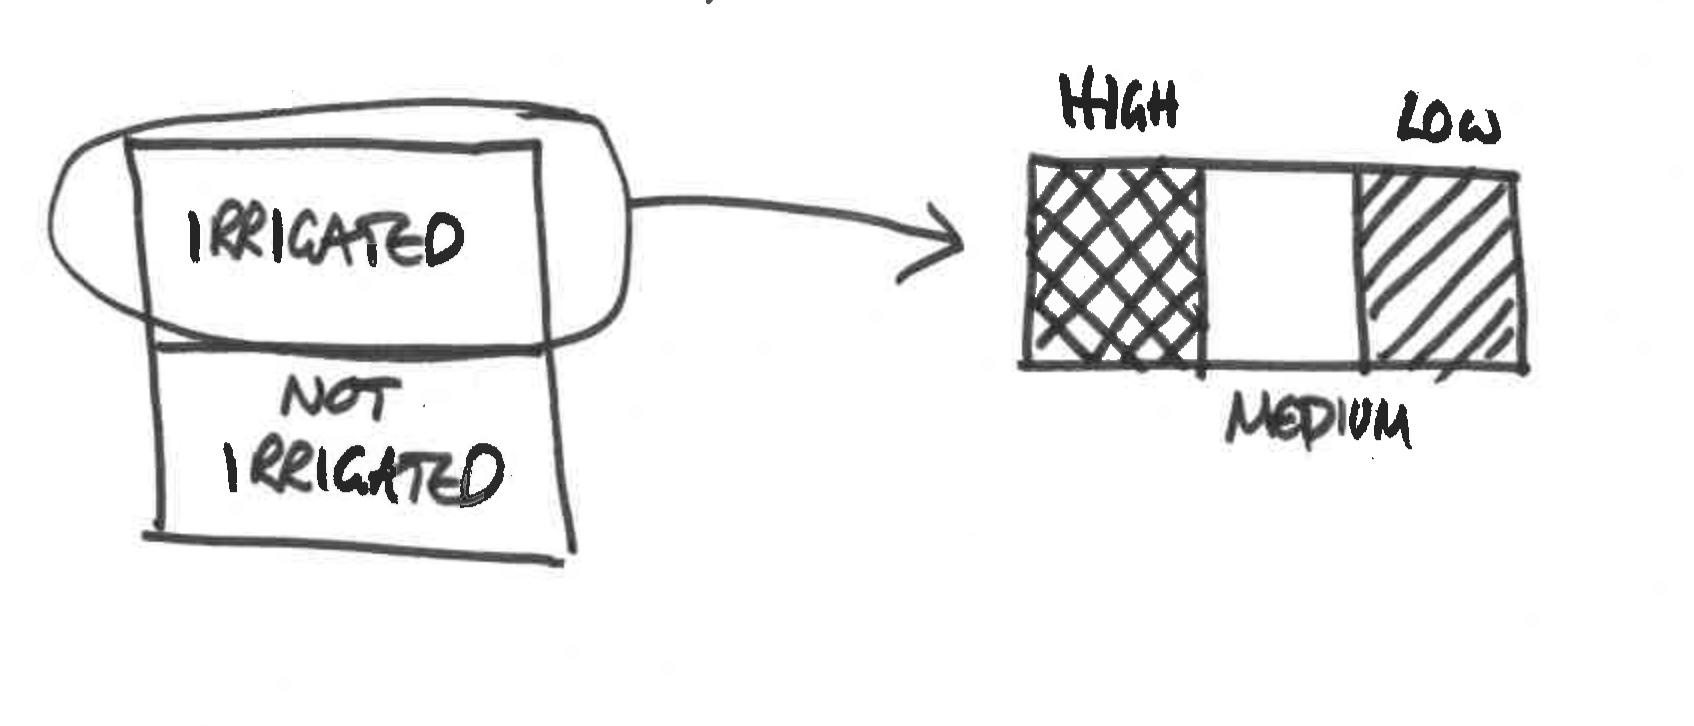 IRRIGATED
NOT
IRRIGATED
HIGH
LOW
MEDIUM